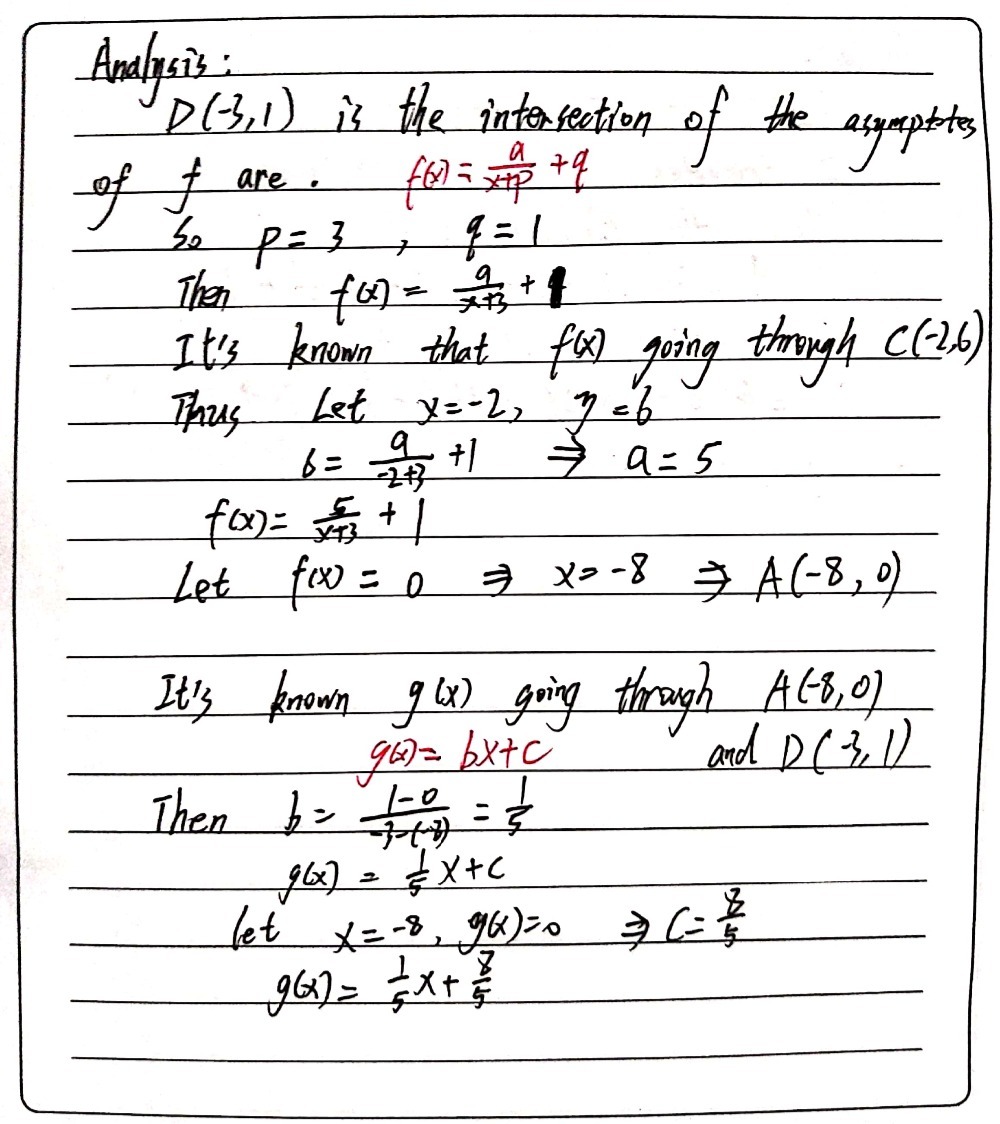 Analysis:
D(-3,1) is the intersection of the asymptotes
of f are. f(x) = a/(x+p) + q
So p = 3 , q = 1
Then f(x) = a/(x+3) + 1
It's known that f(x) going through C(-2,6)
Thus Let x=-2, y=6
6 = a/(-2+3) + 1 ⇒ a = 5
f(x) = 5/(x+3) + 1
Let f(x) = 0 ⇒ x=-8 ⇒ A(-8, 0)
It's known g(x) going through A(-8, 0)
g(x) = bx+c and D(-3, 1)
Then b = (1-0)/(-3-(-8)) = 1/5
g(x) = 1/5 x + c
let x=-8, g(x)=0 ⇒ c = 8/5
g(x) = 1/5 x + 8/5